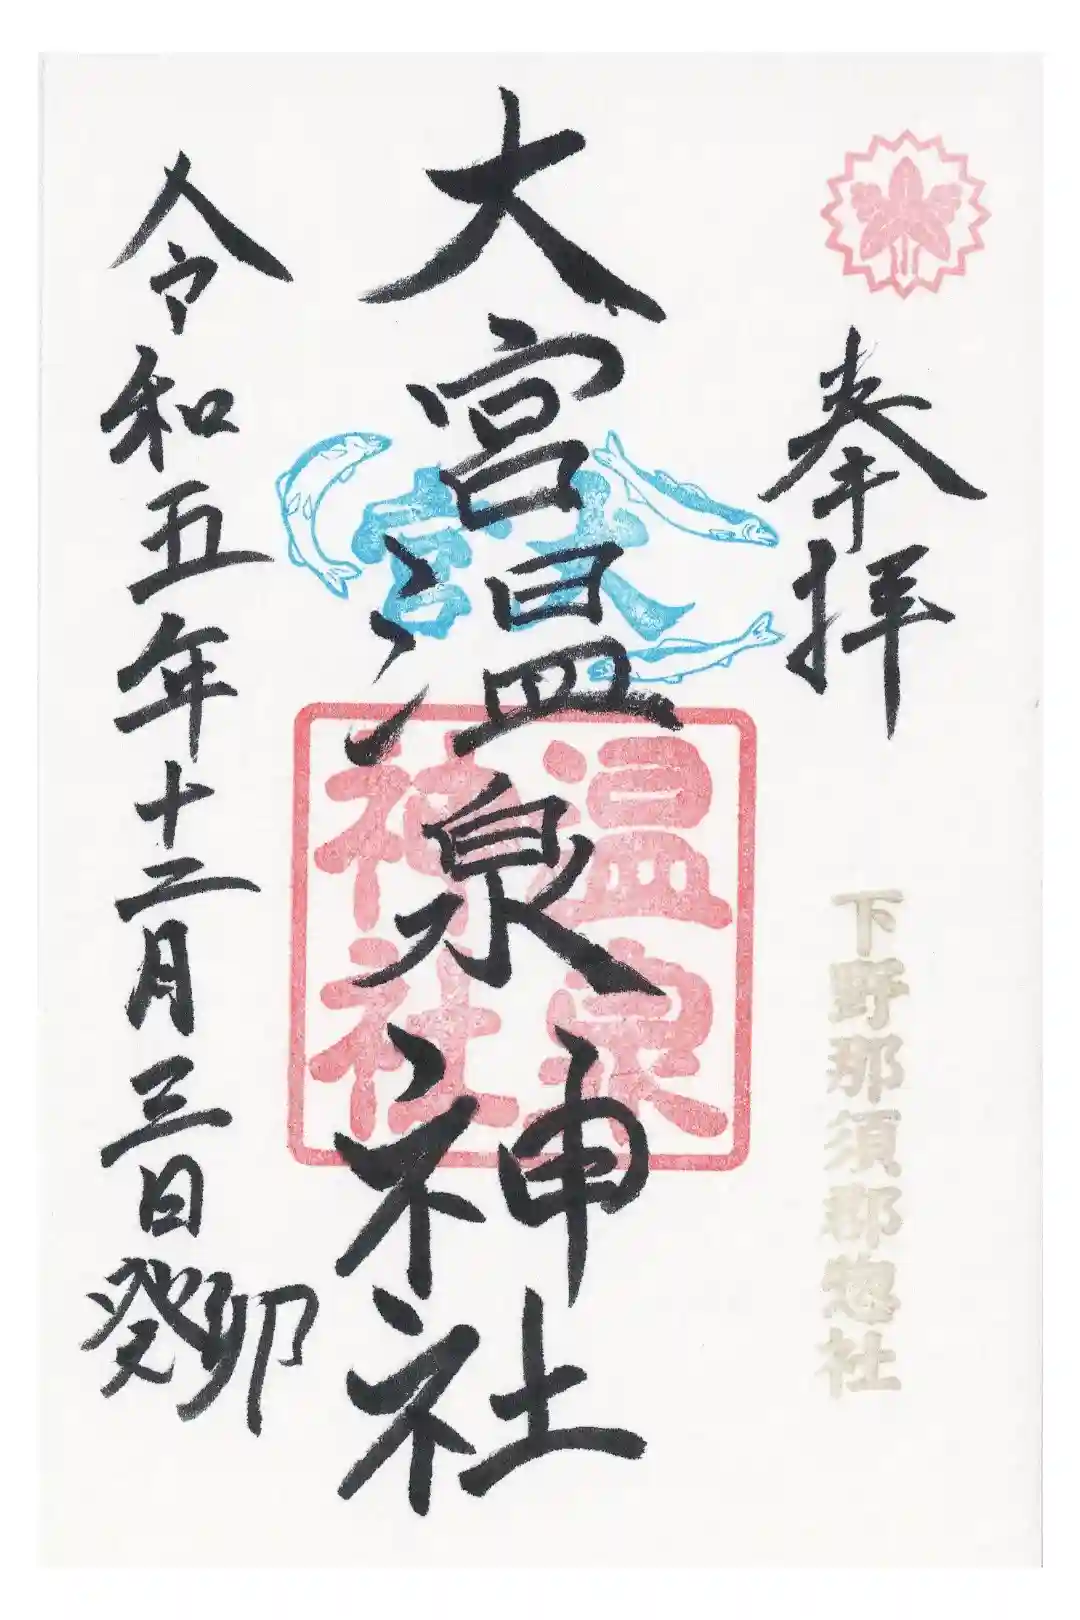 奉拝
下野那須郡惣社
大宮温泉神社
大宮
温泉
神社
令和五年十二月三日
癸卯